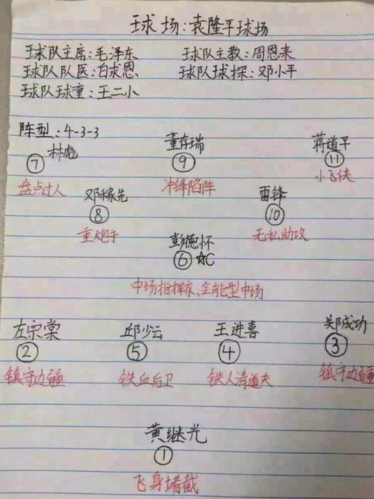 球场:袁隆平球场
球队主席:毛泽东 球队主教:周恩来
球队队医:白求恩 球队球探:邓小平
球队球童:王二小
阵型:4-3-3
林彪 董存瑞 蒋道平
⑦ ⑨ ⑪
盘点过人 冲锋陷阵 小飞侠
邓稼先 雷锋
⑧ ⑩
重炮手 无私助攻
彭德怀
⑥ ☆C
中场指挥家、全能型中场
左宗棠 邱少云 王进喜 郑成功
② ⑤ ④ ③
镇守边疆 铁血后卫 铁人清道夫 镇守边疆
黄继光
①
飞身堵截